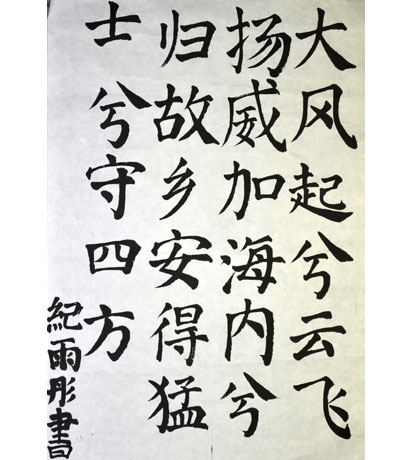 大风起兮云飞
扬威加海内兮
归故乡安得猛
士兮守四方
紀雨彤書